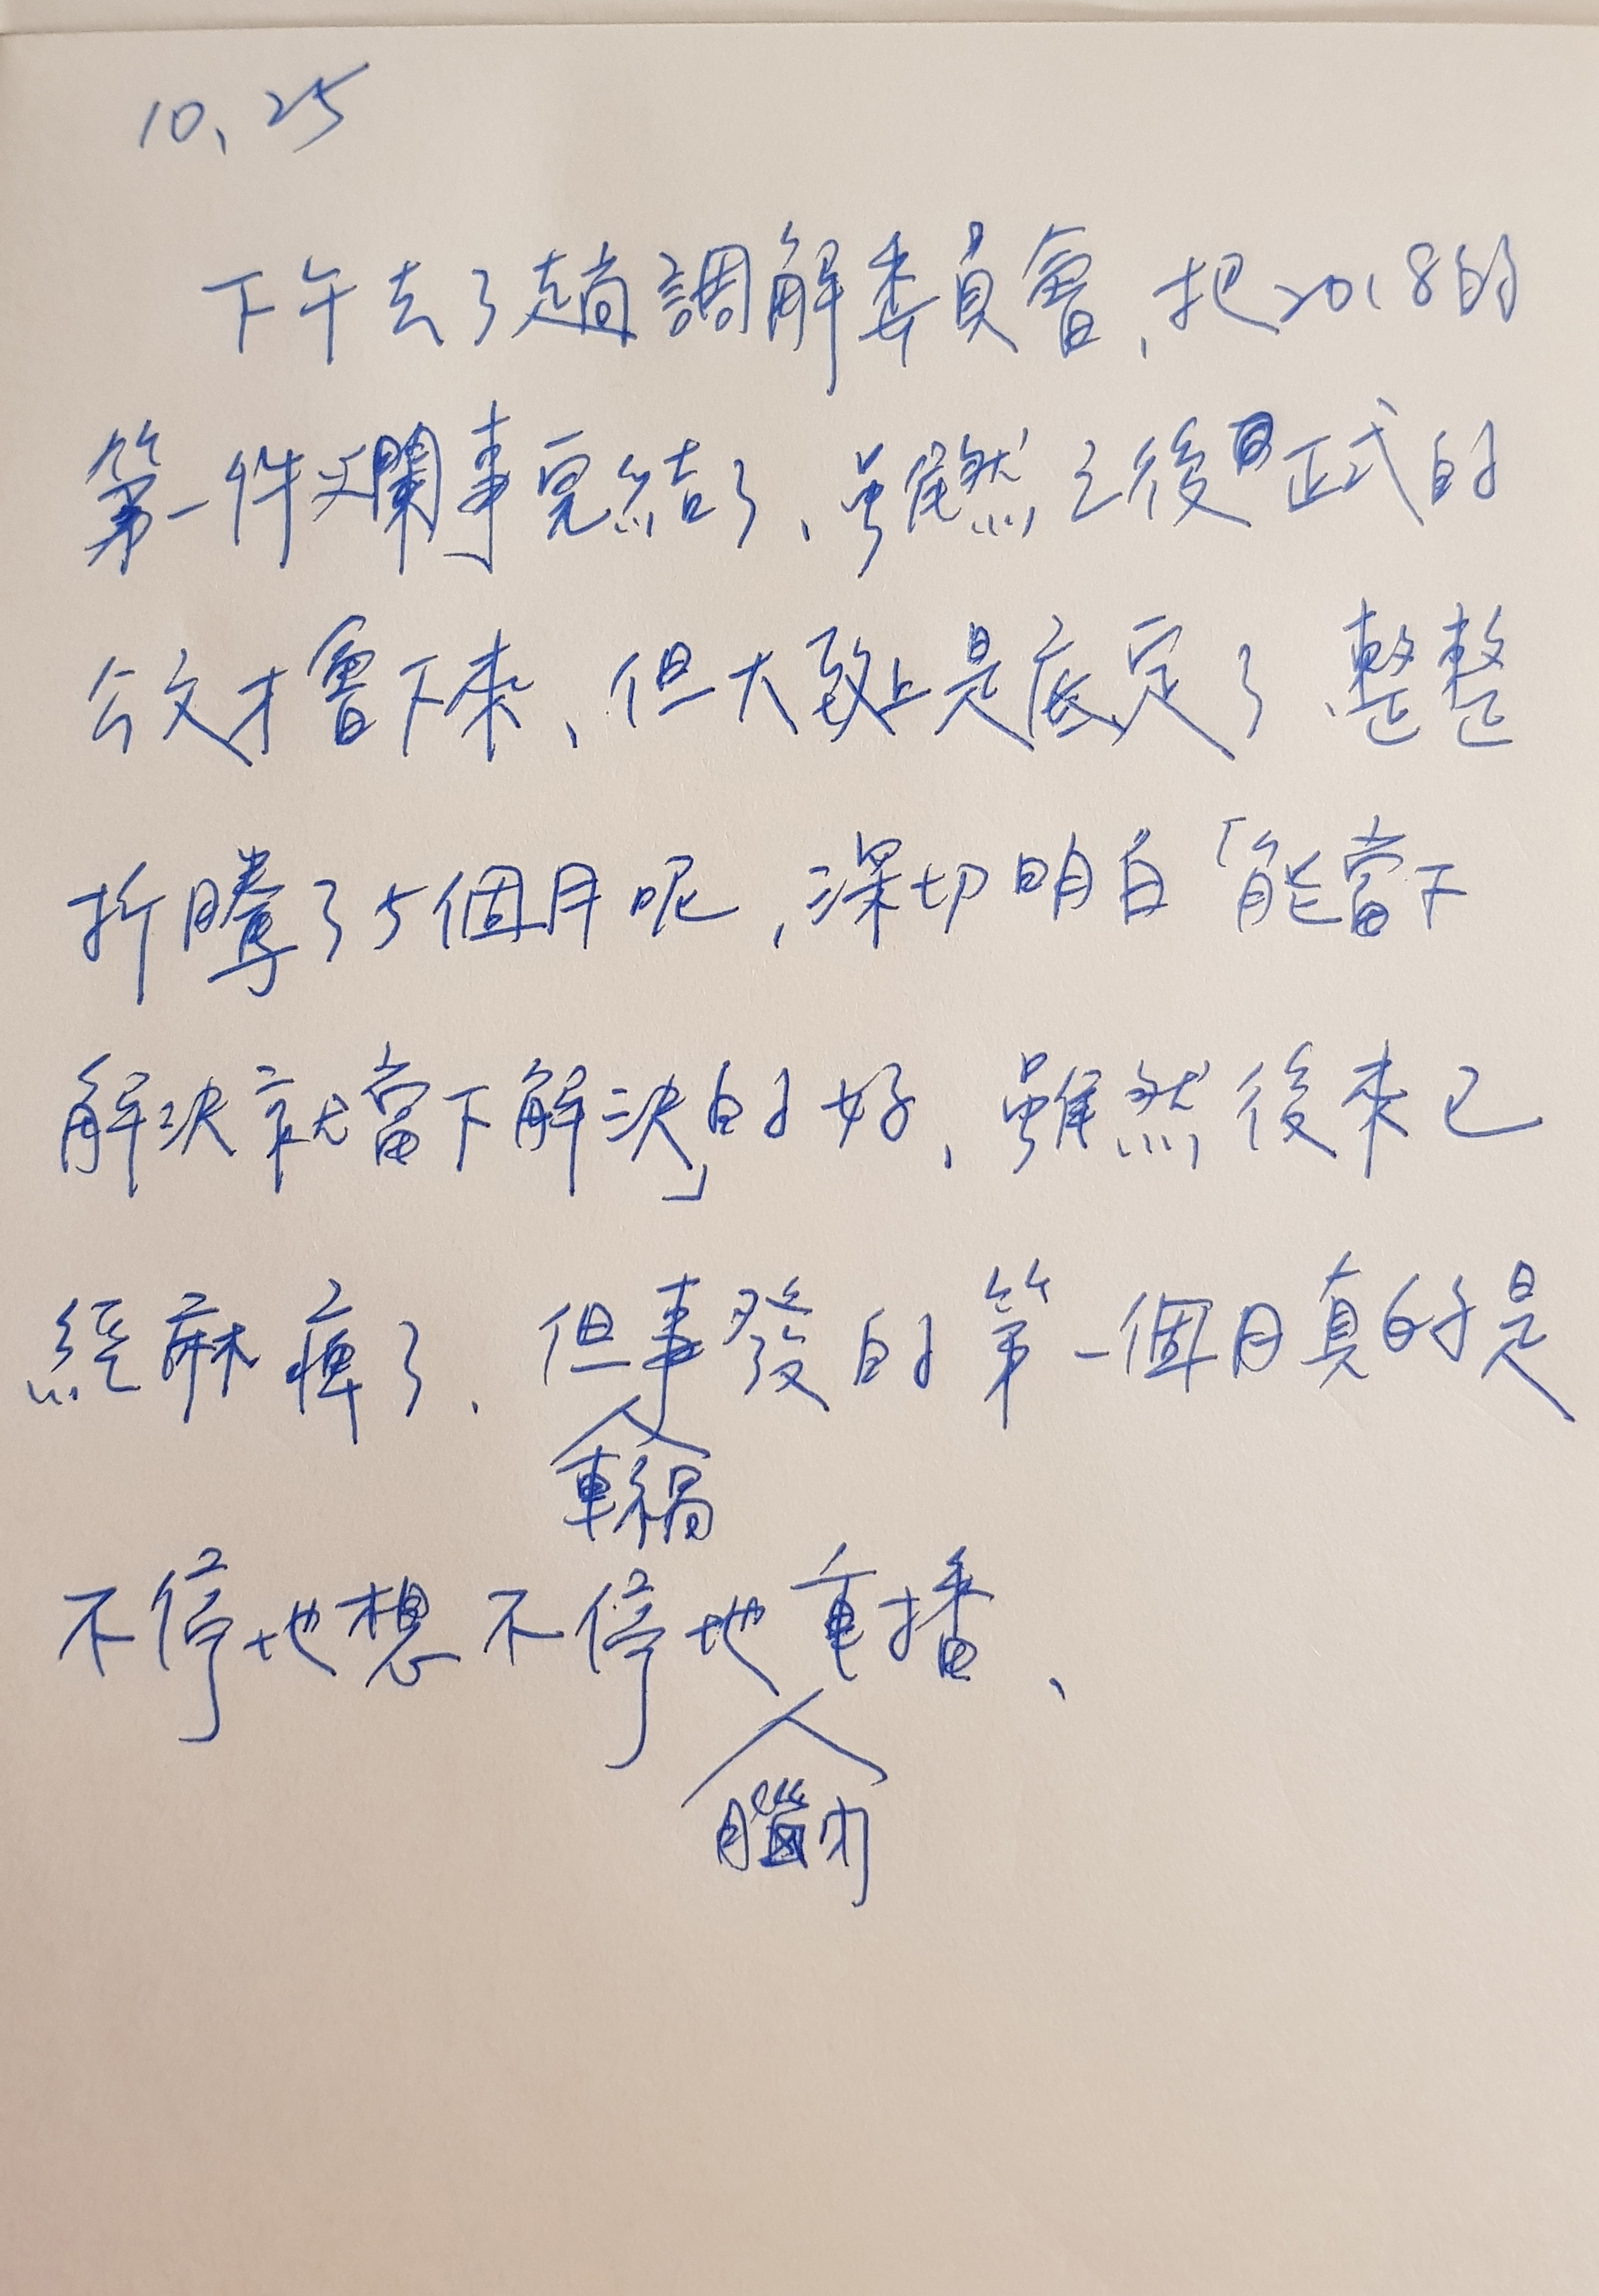 10、25
下午去了趟調解委員會、把2018的
第一件爛事完結了、雖然之後正式的
公文才會下來、但大致上是底定了、整整
折騰了5個月呢，深切明白「能當下
解決就當下解決」的好、雖然後來已
經麻痺了、但事發的第一個月真的是
車禍
不停地想不停地重播、
腦內